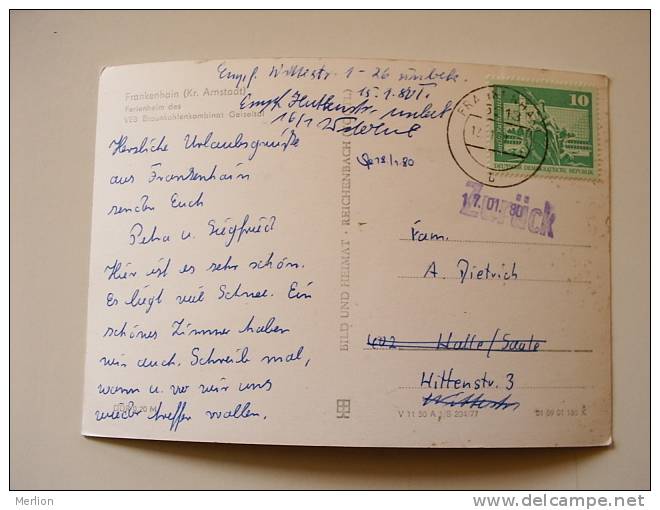 Empf. Wittestr. 1-26 unbek.
15.1.80
Empf. Huttenstr. unbek
16/1
Frankenhain (Kr. Arnstadt)
Ferienheim des
VEB Braunkohlenkombinat Geiseltal
Herzliche Urlaubsgrüße
aus Frankenhain
senden Euch
Petra u. Siegfried
Hier ist es sehr schön.
Es liegt viel Schnee. Ein
schönes Zimmer haben
wir auch. Schreib mal,
wann u. wo wir uns
wieder treffen wollen.
BILD UND HEIMAT · REICHENBACH
10
DEUTSCHE DEMOKRATISCHE REPUBLIK
18/1.80
17.01.80
Zurück
Fam.
A. Dietrich
402 Halle/Saale
Wittenstr. 3
V 11 50 A 1/B 234/77
01 09 01 180 K
Merlion
http://www.delcampe.net